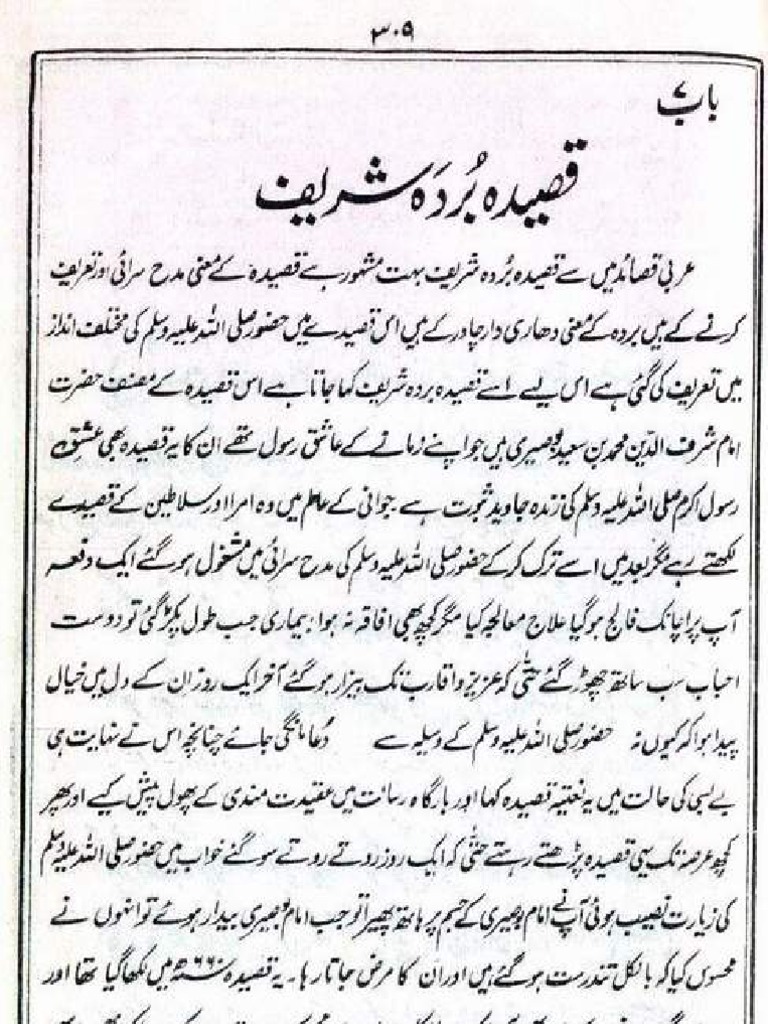 ۳۰۹
باب ۷
قصیدہ بُردَہ شریف
عربی قصائد میں سے قصیدہ بُردہ شریف بہت مشہور ہے قصیدہ کے معنی مدح سرائی اور تعریف
کرنے کے ہیں بردہ کے معنی دھاری دار چادر کے ہیں اس قصیدے میں حضور صلی اللہ علیہ وسلم کی مختلف انداز
میں تعریف کی گئی ہے اس لیے اسے قصیدہ بردہ شریف کہا جاتا ہے اس قصیدہ کے مصنف حضرت
امام شرف الدین محمد بن سعید بوصیری ہیں جو اپنے زمانے کے عاشق رسول تھے ان کا یہ قصیدہ بھی عشق
رسول اکرم صلی اللہ علیہ وسلم کی زندہ جاوید ثبوت ہے جوانی کے عالم میں وہ امرا اور سلاطین کے قصیدے
لکھتے رہے مگر بعد میں اسے ترک کر کے حضور صلی اللہ علیہ وسلم کی مدح سرائی میں مشغول ہو گئے ایک دفعہ
آپ پر اچانک فالج ہو گیا علاج معالجہ کیا مگر کچھ بھی افاقہ نہ ہوا، بیماری جب طول پکڑ گئی تو دوست
احباب سب ساتھ چھوڑ گئے حتیٰ کہ عزیز و اقارب تک بیزار ہو گئے آخر ایک روز ان کے دل میں خیال
پیدا ہوا کہ کیوں نہ حضور صلی اللہ علیہ وسلم کے وسیلہ سے دُعا مانگی جائے چنانچہ اس نے نہایت ہی
بے بسی کی حالت میں یہ نعتیہ قصیدہ کہا اور بارگاہ رسالت میں عقیدت مندی کے پھول پیش کیے اور پھر
کچھ عرصہ تک یہی قصیدہ پڑھتے رہتے حتیٰ کہ ایک روز روتے روتے سو گئے خواب میں حضور صلی اللہ علیہ وسلم
کی زیارت نصیب ہوئی آپ نے امام بوصیری کے جسم پر ہاتھ پھیرا تو جب امام بوصیری بیدار ہوئے تو انہوں نے
محسوس کیا کہ بالکل تندرست ہو گئے ہیں اور ان کا مرض جاتا رہا۔ یہ قصیدہ ۶۶۰ھ میں لکھا گیا تھا اور